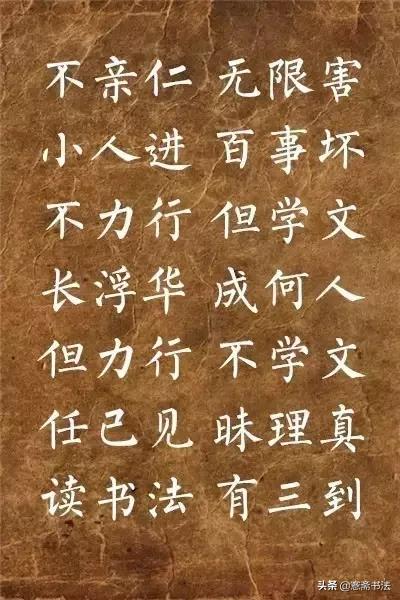 不亲仁 无限害
小人进 百事坏
不力行 但学文
长浮华 成何人
但力行 不学文
任己见 昧理真
读书法 有三到
头条 @憲斋书法